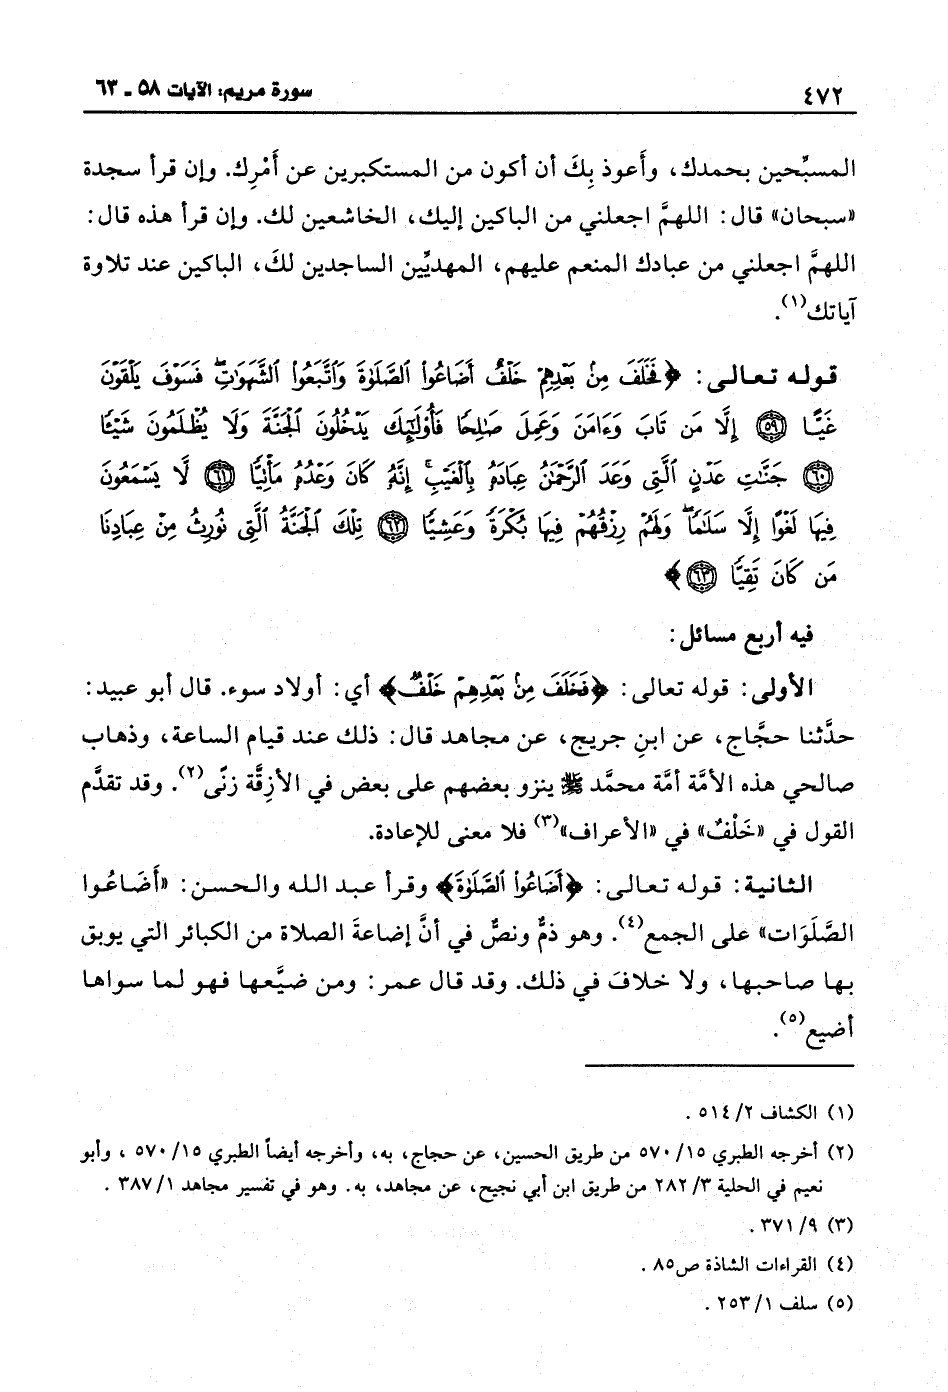 ٤٧٢
سورة مريم: الآيات ٥٨ ـ ٦٣
المسبِّحين بحمدك، وأَعوذ بِكَ أن أكون من المستكبرين عن أَمْرِك. وإن قرأ سجدة
«سبحان» قال: اللهمَّ اجعلني من الباكين إليك، الخاشعين لك. وإن قرأ هذه قال:
اللهمَّ اجعلني من عبادك المنعم عليهم، المهديِّين الساجدين لكَ، الباكين عند تلاوة
آياتك(١).
قوله تعالى: ﴿فَخَلَفَ مِنۢ بَعْدِهِمْ خَلْفٌ أَضَاعُوا۟ ٱلصَّلَوٰةَ وَٱتَّبَعُوا۟ ٱلشَّهَوَٰتِ ۖ فَسَوْفَ يَلْقَوْنَ
غَيًّا ٥٩ إِلَّا مَن تَابَ وَءَامَنَ وَعَمِلَ صَٰلِحًا فَأُو۟لَٰٓئِكَ يَدْخُلُونَ ٱلْجَنَّةَ وَلَا يُظْلَمُونَ شَيْـًٔا
٦٠ جَنَّٰتِ عَدْنٍ ٱلَّتِى وَعَدَ ٱلرَّحْمَٰنُ عِبَادَهُۥ بِٱلْغَيْبِ ۚ إِنَّهُۥ كَانَ وَعْدُهُۥ مَأْتِيًّا ٦١ لَّا يَسْمَعُونَ
فِيهَا لَغْوًا إِلَّا سَلَٰمًا ۖ وَلَهُمْ رِزْقُهُمْ فِيهَا بُكْرَةً وَعَشِيًّا ٦٢ تِلْكَ ٱلْجَنَّةُ ٱلَّتِى نُورِثُ مِنْ عِبَادِنَا
مَن كَانَ تَقِيًّا ٦٣﴾
فيه أربع مسائل:
الأولى: قوله تعالى: ﴿فَخَلَفَ مِنۢ بَعْدِهِمْ خَلْفٌ﴾ أي: أولاد سوء. قال أبو عبيد:
حدَّثنا حجَّاج، عن ابنِ جريج، عن مجاهد قال: ذلك عند قيام الساعة، وذهاب
صالحي هذه الأمَّة أمَّة محمَّد ﷺ ينزو بعضهم على بعض في الأزِقَّة زنًى(٢). وقد تقدَّم
القول في «خَلْفٌ» في «الأعراف»(٣) فلا معنى للإعادة.
الثانية: قوله تعالى: ﴿أَضَاعُوا۟ ٱلصَّلَوٰةَ﴾ وقرأ عبد الله والحسن: «أَضَاعُوا
الصَّلَوَات» على الجمع(٤). وهو ذمٌّ ونصٌّ في أنَّ إضاعةَ الصلاة من الكبائر التي يوبق
بها صاحبها، ولا خلافَ في ذلك. وقد قال عمر: ومن ضيَّعها فهو لما سواها
أضيع(٥).
(١) الكشاف ٢/ ٥١٤ .
(٢) أخرجه الطبري ١٥/ ٥٧٠ من طريق الحسين، عن حجاج، به، وأخرجه أيضاً الطبري ١٥/ ٥٧٠ ، وأبو
نعيم في الحلية ٣/ ٢٨٢ من طريق ابن أبي نجيح، عن مجاهد، به. وهو في تفسير مجاهد ١/ ٣٨٧ .
(٣) ٩/ ٣٧١ .
(٤) القراءات الشاذة ص٨٥ .
(٥) سلف ١/ ٢٥٣ .